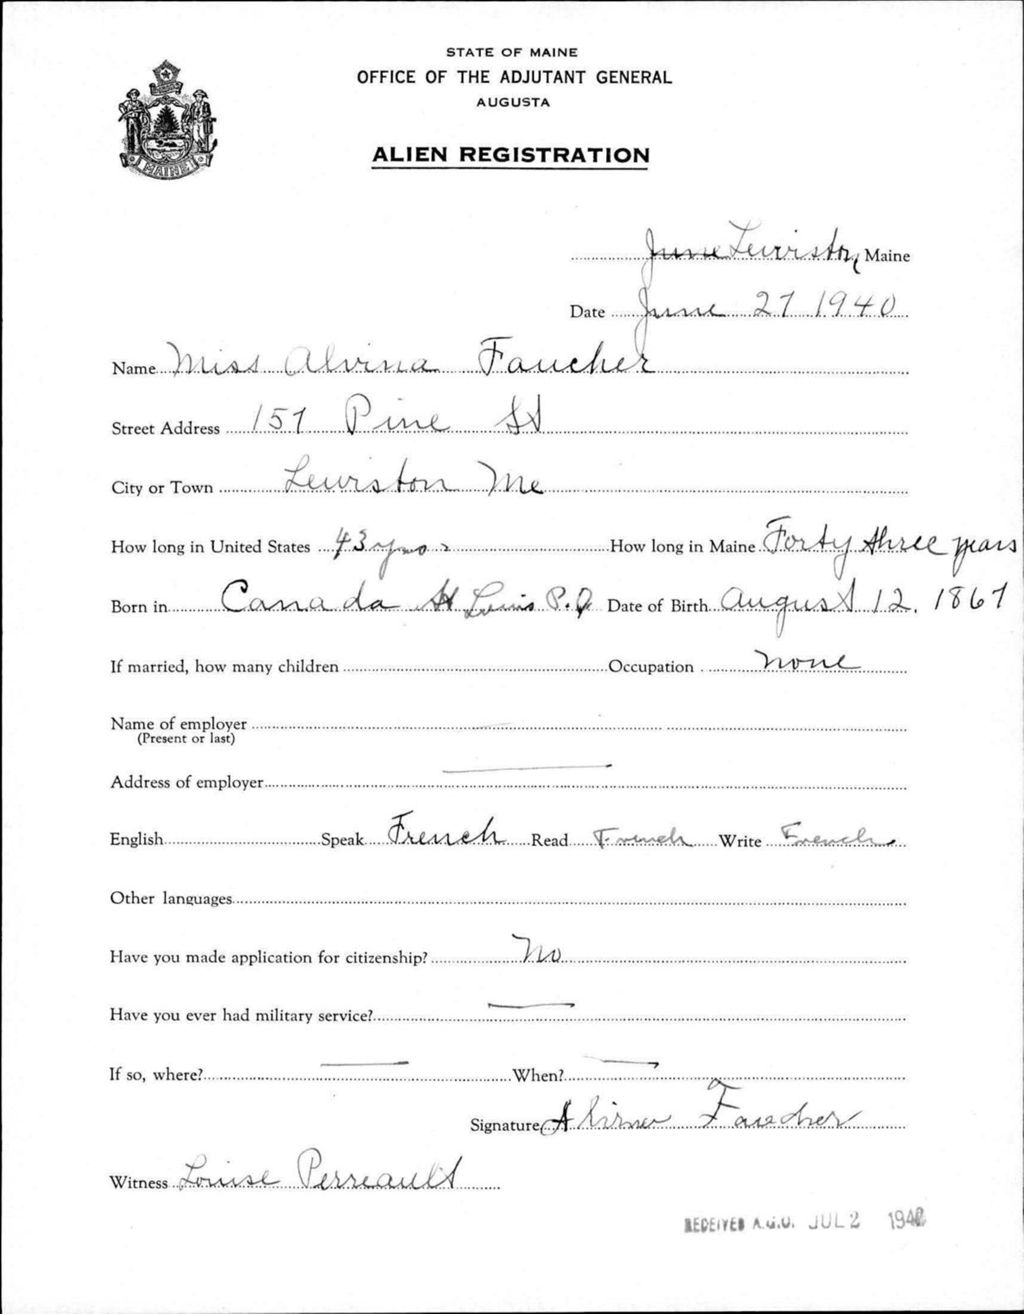 STATE OF MAINE
OFFICE OF THE ADJUTANT GENERAL
AUGUSTA
ALIEN REGISTRATION
MAINE
June Lewiston, Maine
Date June 27 1940
Name Miss Alvina Faucher
Street Address 157 Pine St
City or Town Lewiston Me
How long in United States 43 yrs How long in Maine Forty three years
Born in Canada St Louis P.Q Date of Birth August 12, 1867
If married, how many children Occupation none
Name of employer
(Present or last)
Address of employer
English Speak French Read French Write French
Other languages
Have you made application for citizenship? No
Have you ever had military service?
If so, where? When?
Signature Faucher
Witness Louise Perreault
RECEIVED A.G.O. JUL 2 1940